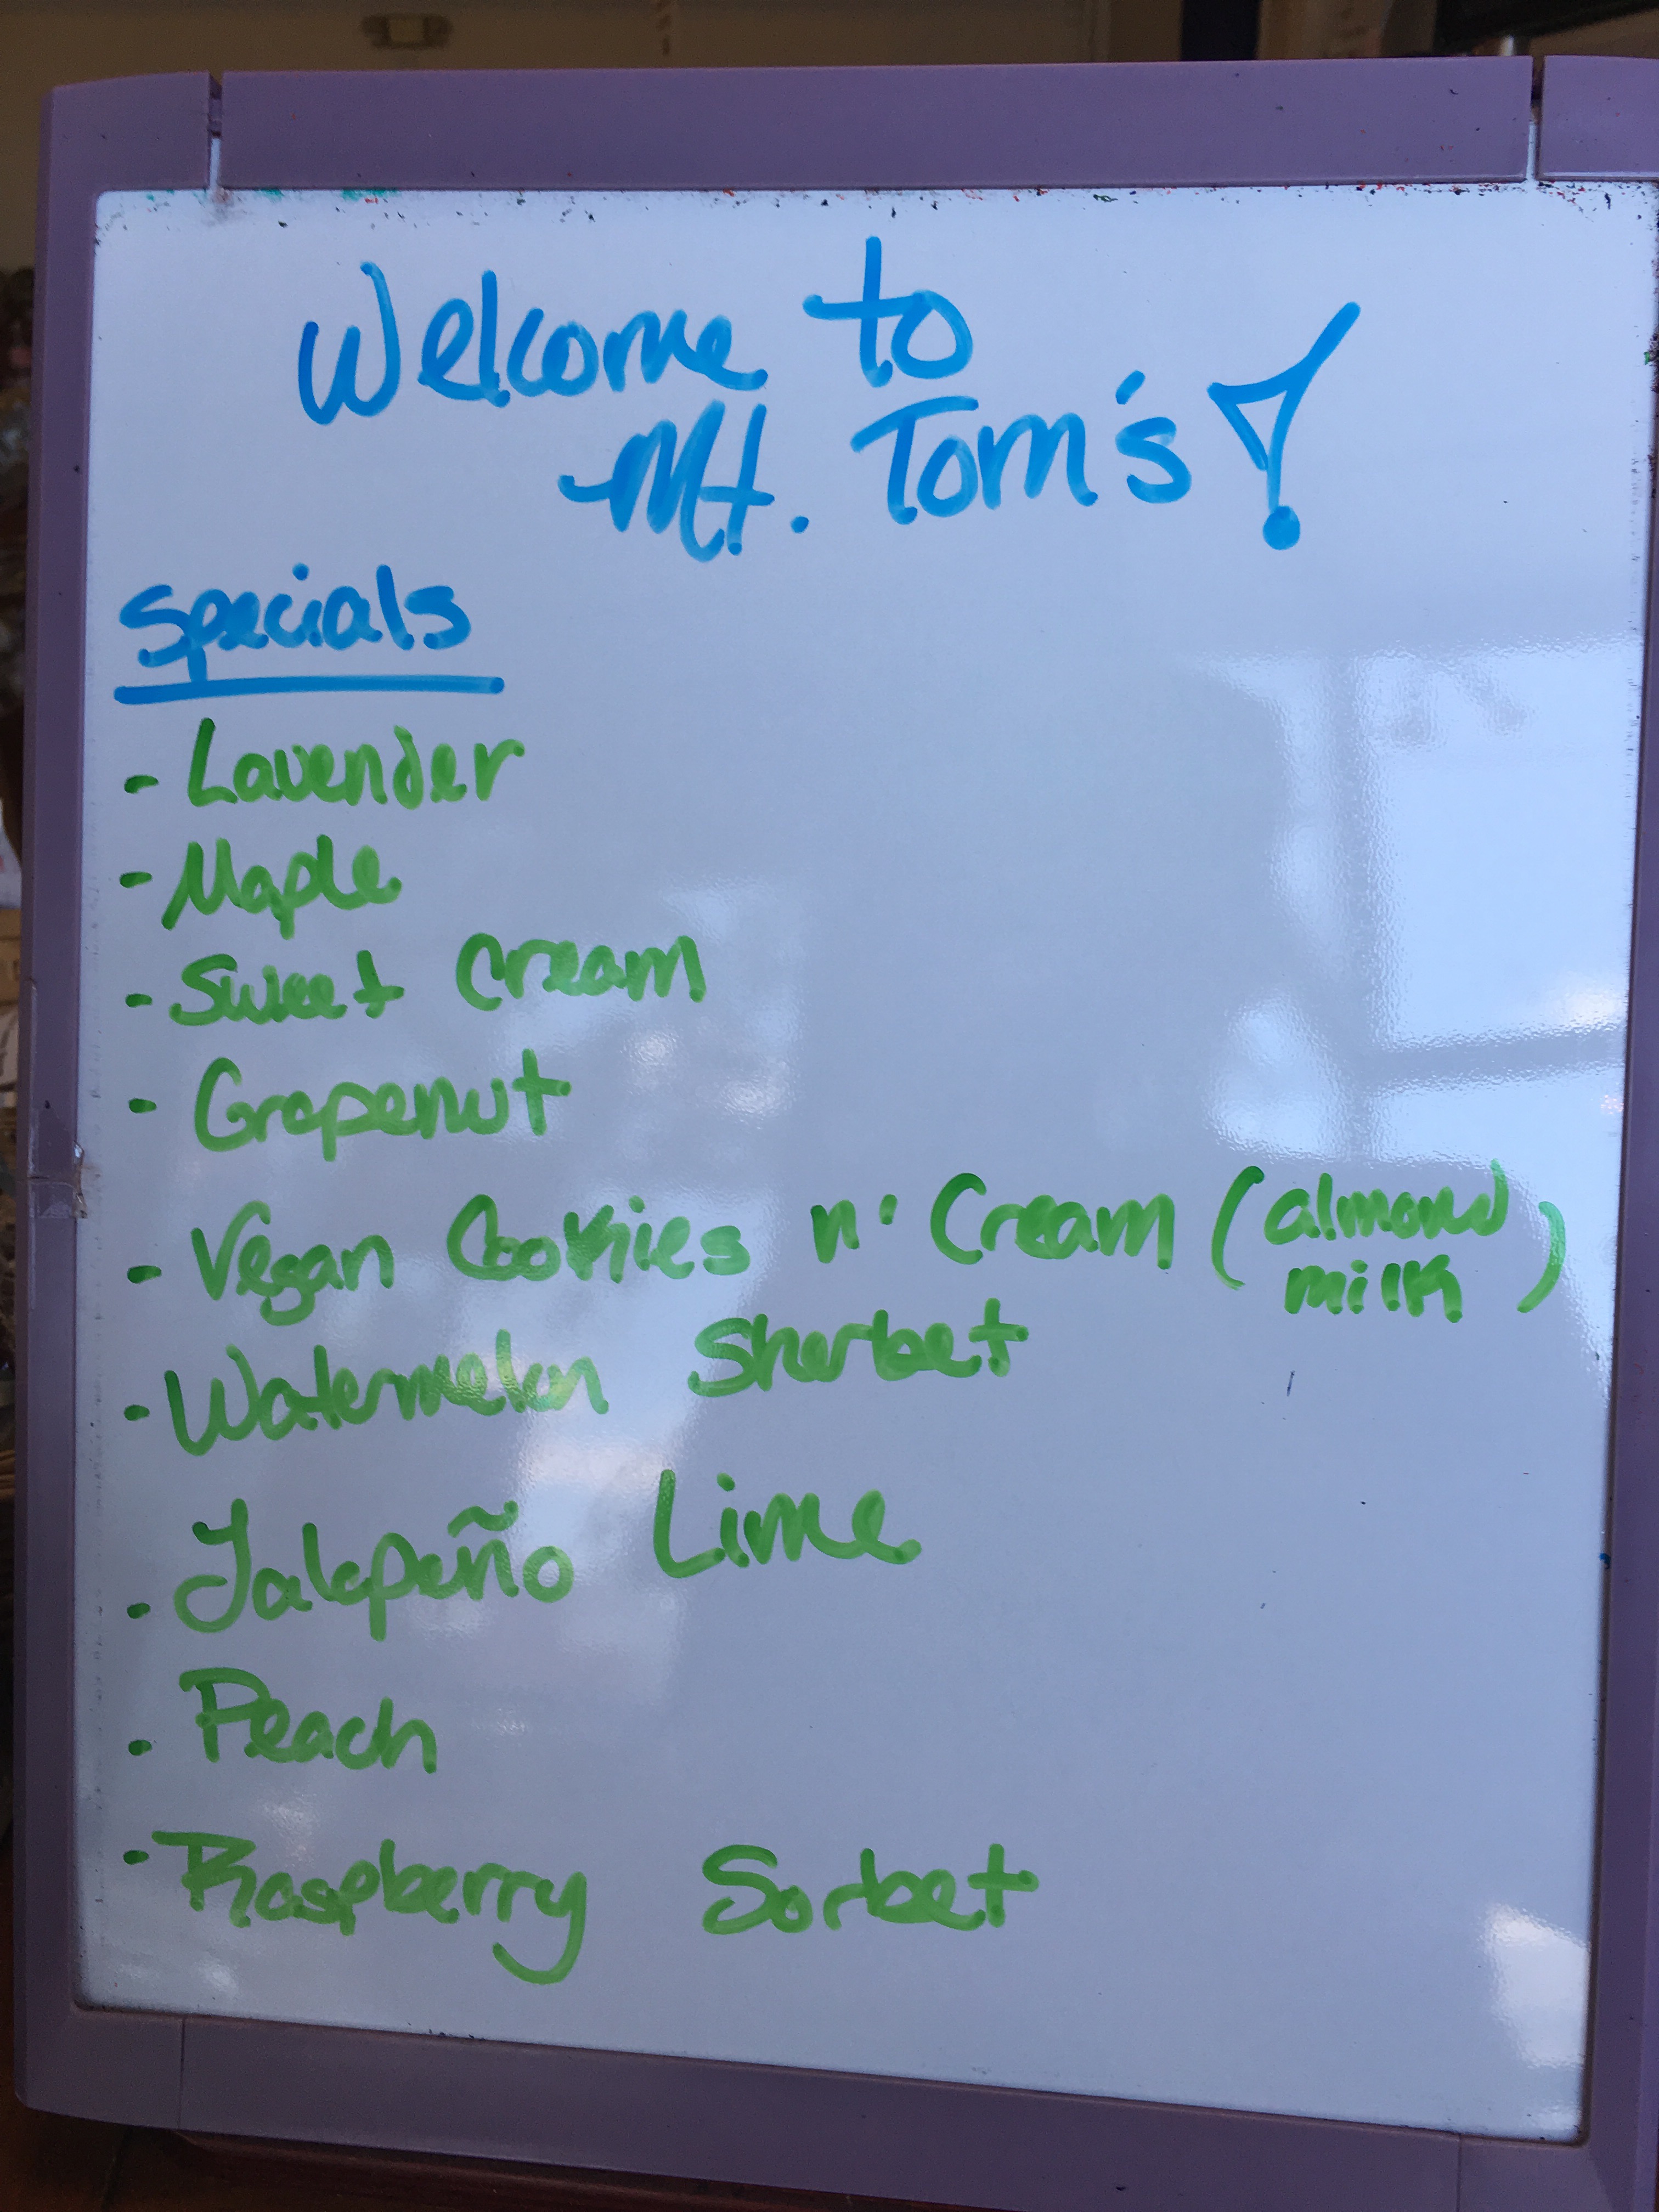 Welcome to
Mt. Tom's!
Specials
- Lavender
- Maple
- Sweet Cream
- Grapenut
- Vegan Cookies n' Cream (almond
milk)
- Watermelon Sherbet
- Jalepeño Lime
- Peach
- Raspberry Sorbet